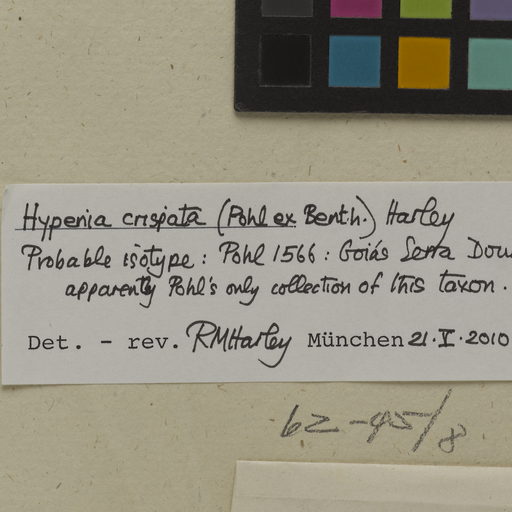 Hypenia crispata (Pohl ex Benth.) Harley
Probable isotype : Pohl 1566 : Goiás Serra
apparently Pohl's only collection of this taxon.
Det. - rev. RMHarley München 21.V.2010
62-45/8